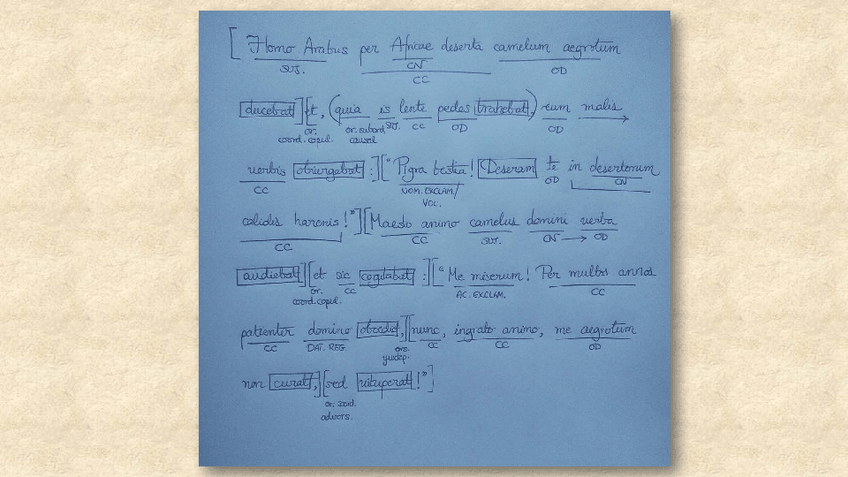 [Homo Arabus per Africae deserta camelum aegrotum
SUJ. CN OD
CC
ducebat][et, (quia is lente pedes trahebat) eum malis
or. coord. copul. or. subord. causal SUJ. CC OD OD
verbis obiurgabat:]["Pigra bestia! Deseram te in desertorum
CC NOM. EXCLAM/ VOC. OD CN
calidis harenis!"][Maesto animo camelus domini verba
CC CC SUJ. CN OD
audiebat][et sic cogitabat:]["Me miserum! Per multos annos
or. coord. copul. CC AC. EXCLAM. CC
patienter domino obœdivi,][nunc, ingrato animo, me aegrotum
CC DAT. REG. CC CC OD
non curat,][sed vituperat!"]
or. coord. advers.